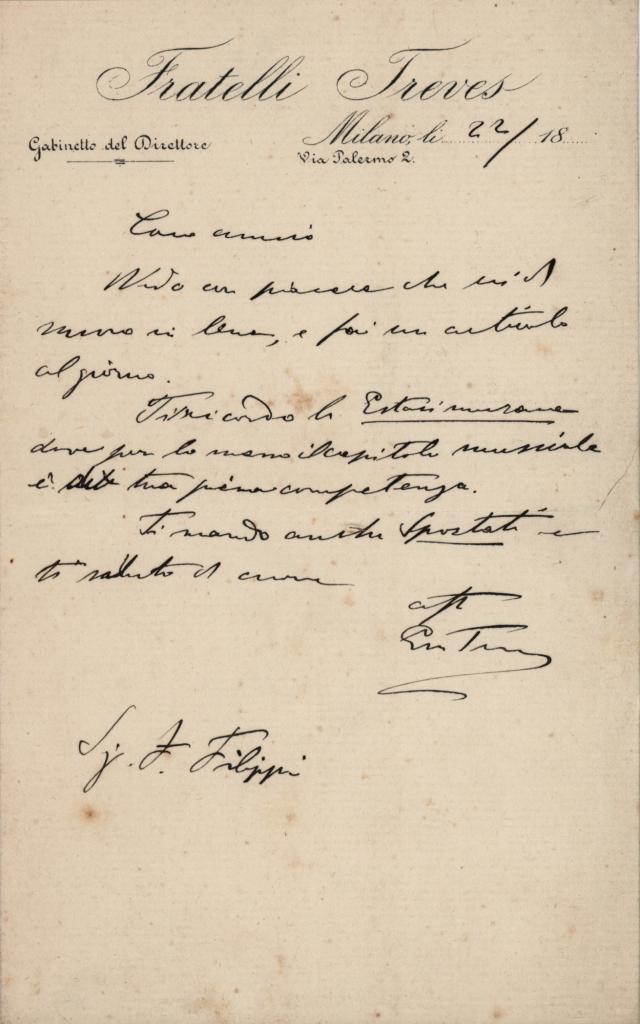 Fratelli Treves
Gabinetto del Direttore
Milano, li 22/ 18
Via Palermo 2.
Caro amico
Vedo con piacere che sei di
nuovo in lena, e fai un articolo
al giorno.
Ti ricordo le Estasi umane
dove per lo meno il capitolo musicale
è di tua piena competenza.
Ti mando anche Spostati e
ti saluto di cuore
aff
Em Treves
Sig. F. Filippi